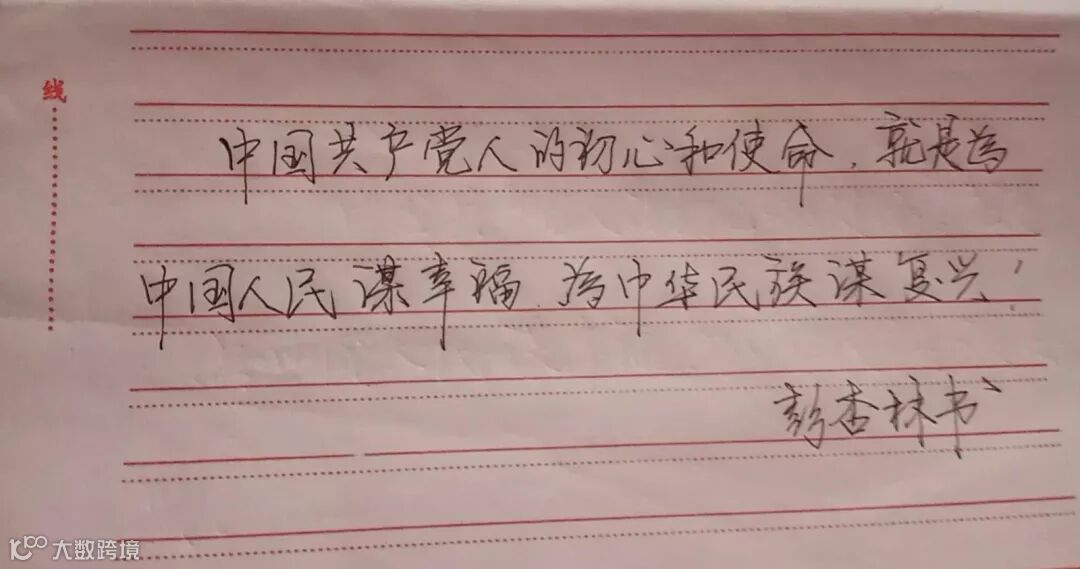 线
中国共产党人的初心和使命，就是为
中国人民谋幸福，为中华民族谋复兴！
彭杏林书
大数跨境